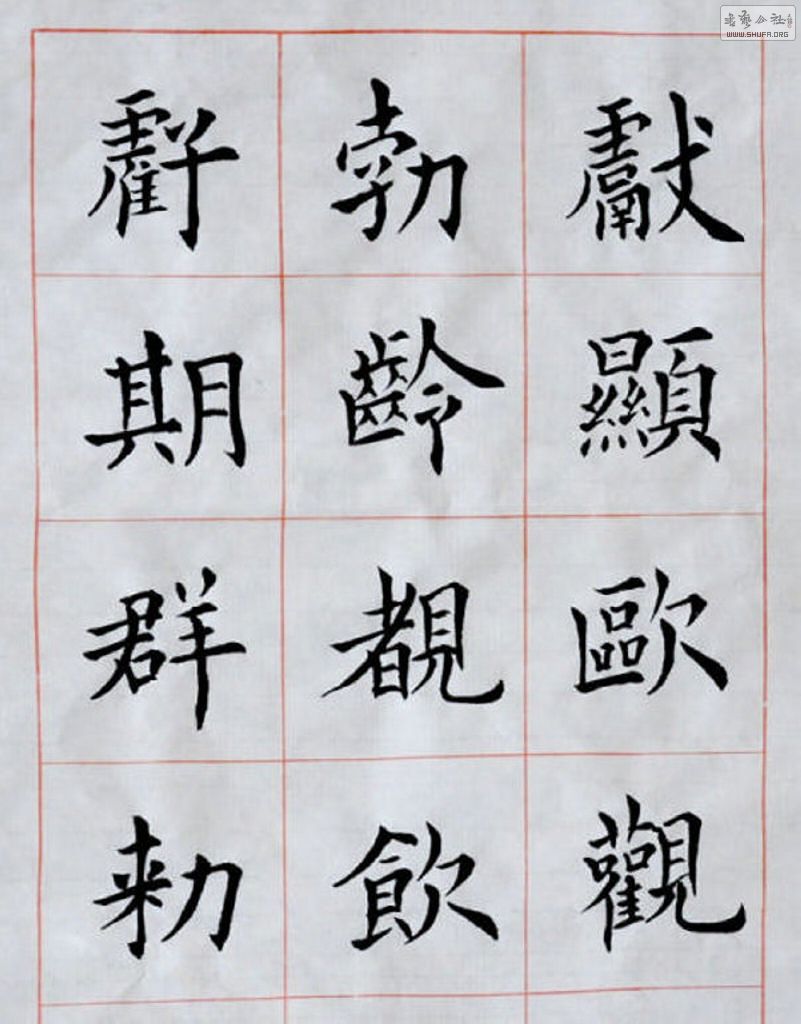 獻顯歐觀
勃齡覩飲
虧期群勑
书艺公社
WWW.SHUFA.ORG